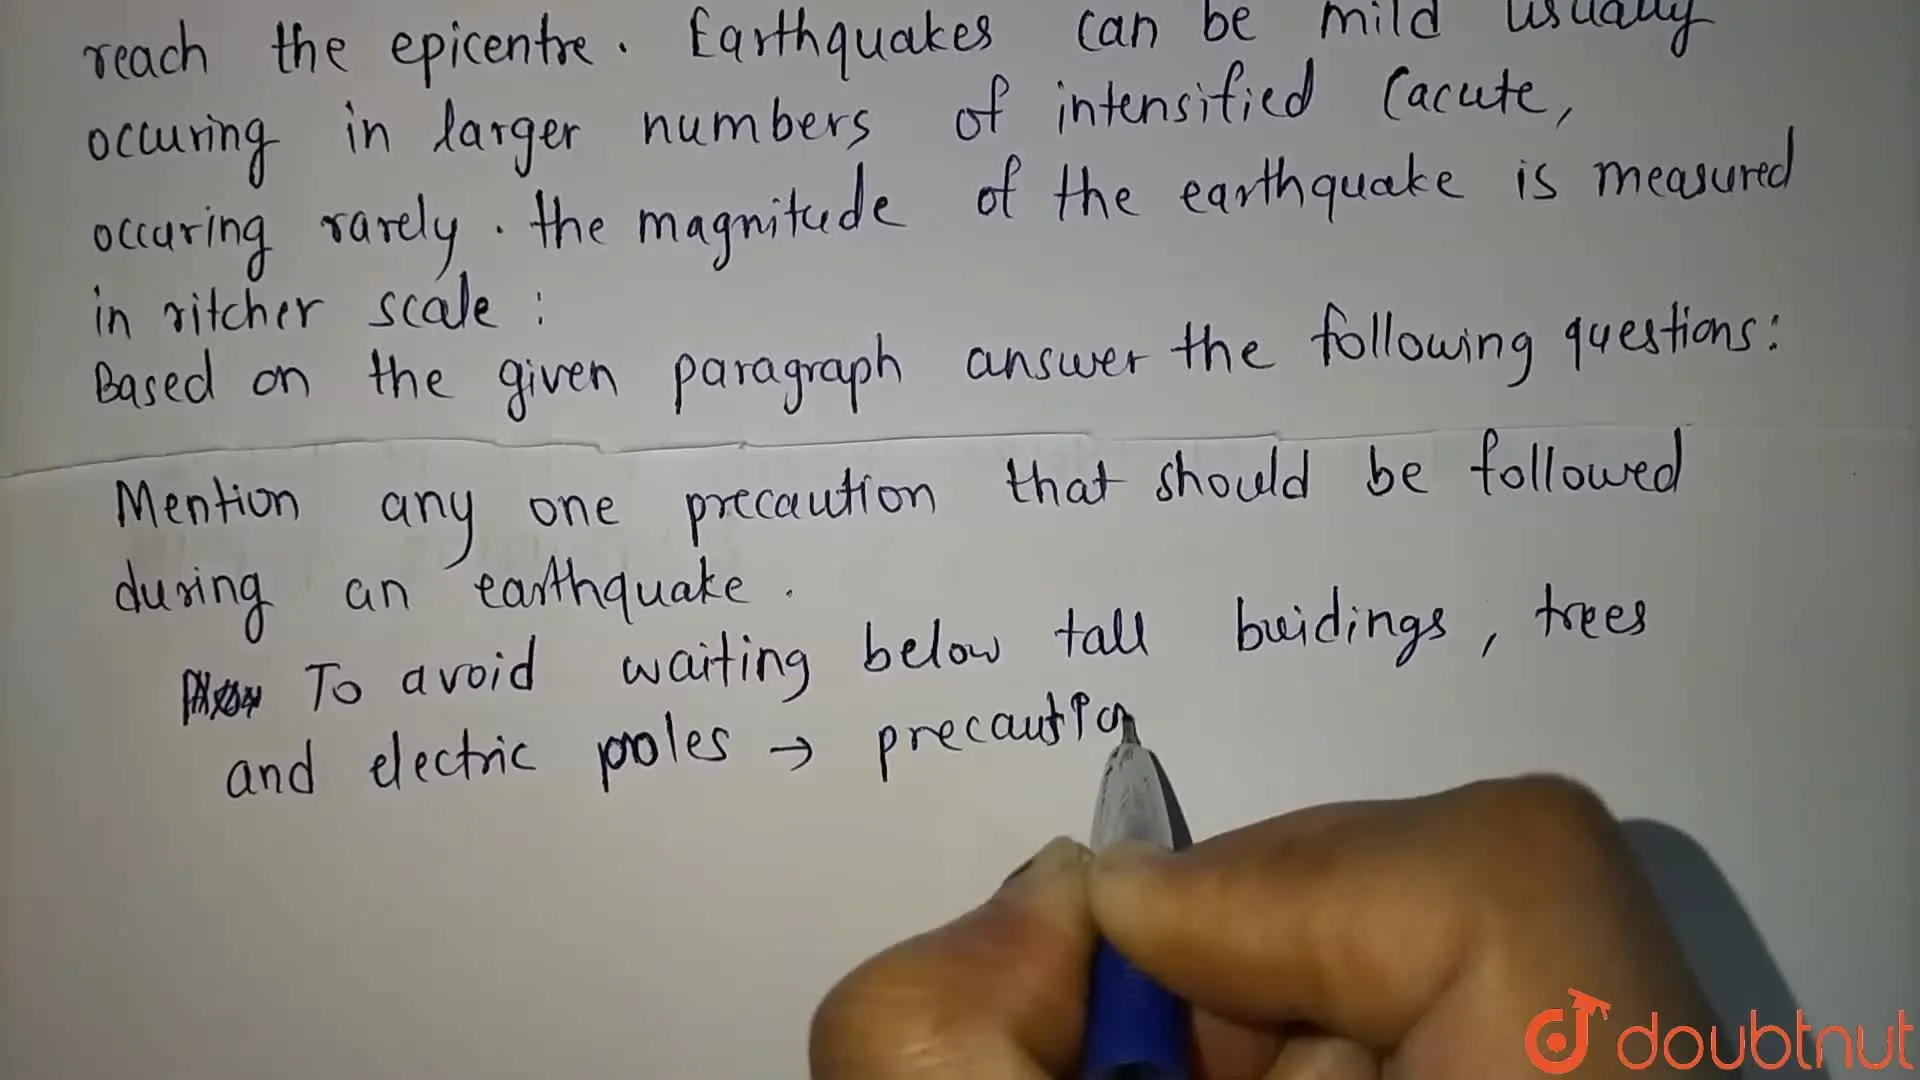 reach the epicentre. Earthquakes can be mild usually
occuring in larger numbers of intensified (acute,
occuring rarely. the magnitude of the earthquake is measured
in ritcher scale:
Based on the given paragraph answer the following questions:
Mention any one precaution that should be followed
during an earthquake.
To avoid waiting below tall buidings, trees
and electric poles → precautio
doubtnut